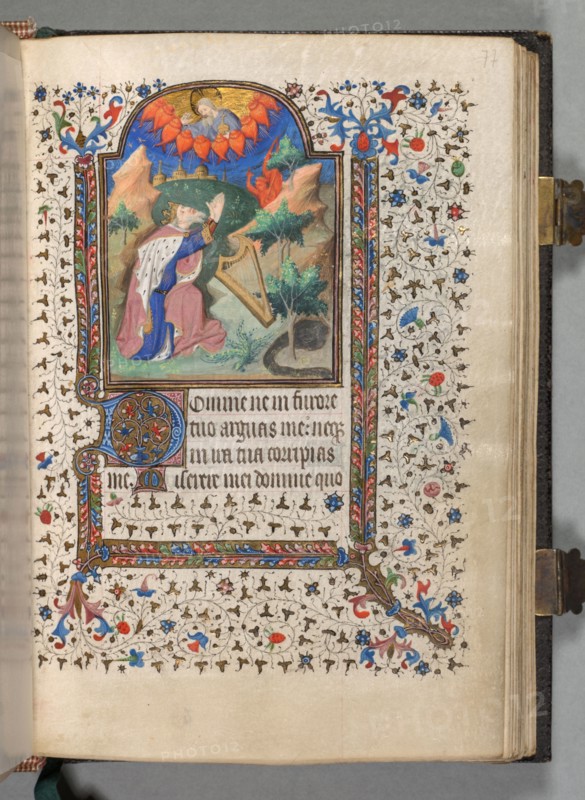 77
Domine ne in furore
tuo arguas me: neqꝫ
in ira tua corripias
me. Miserere mei domine quo
PHOTO12
PHOTO12
PHOTO12